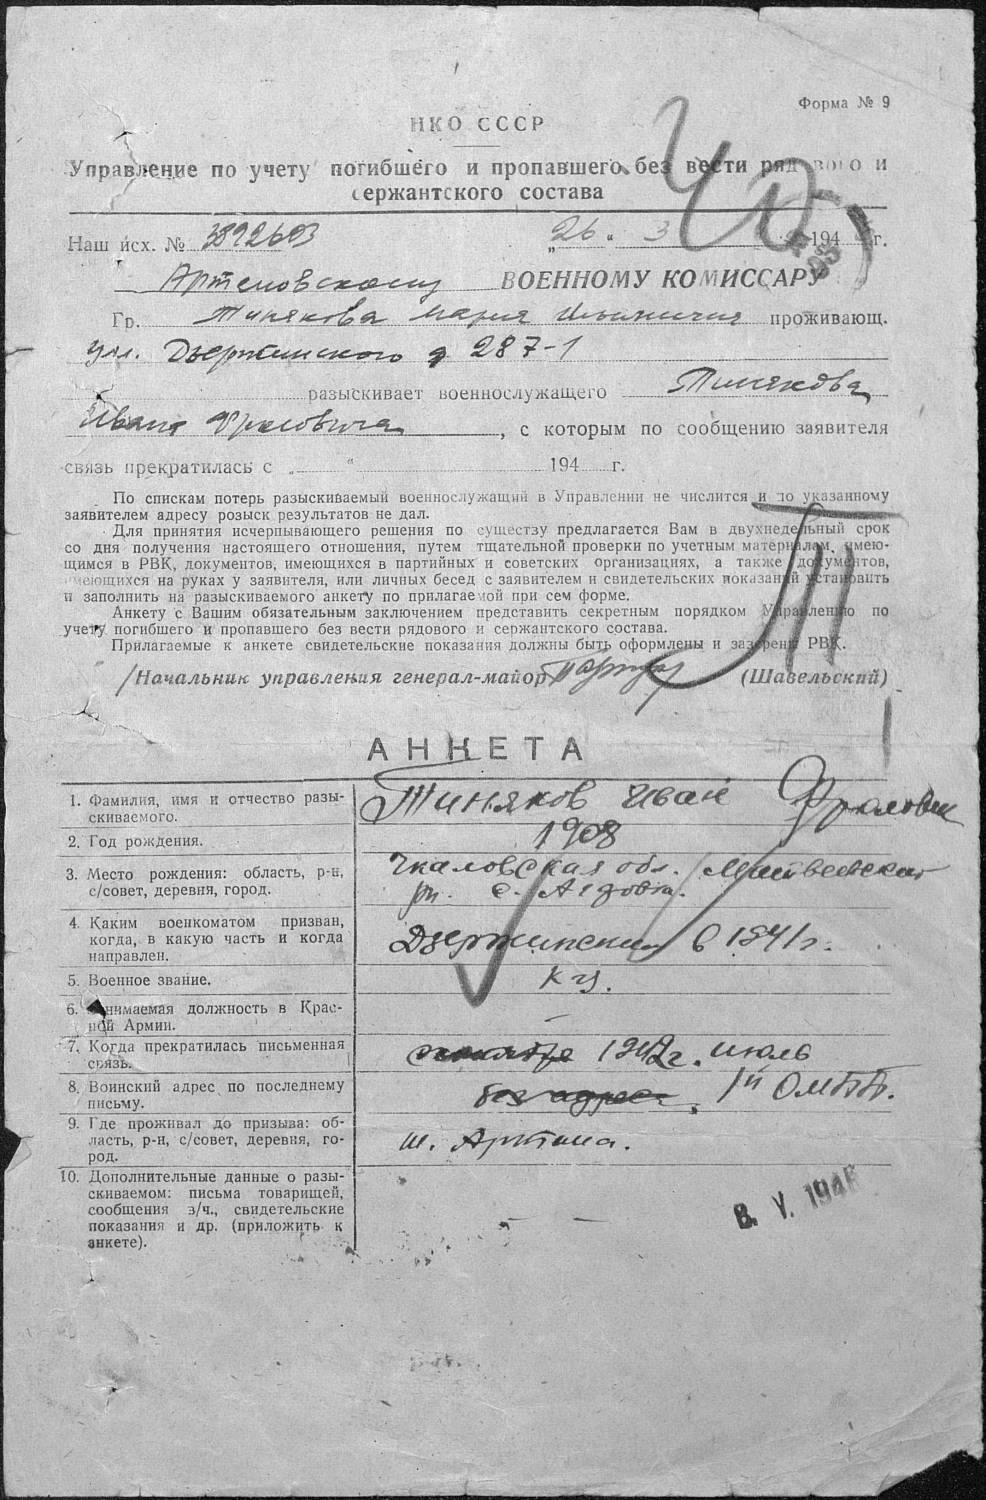 Форма № 9
НКО СССР
Управление по учету погибшего и пропавшего без вести рядового и
сержантского состава
Наш исх. № 3892603 „26“ 3 194 г.
Артемовскому ВОЕННОМУ КОМИССАРУ
Гр. Тинякова Мария проживающ.
ул. Дзержинского д 287-1
разыскивает военнослужащего Тинякова
Ивана Фроловича, с которым по сообщению заявителя
связь прекратилась с „ “ 194 г.
По спискам потерь разыскиваемый военнослужащий в Управлении не числится и по указанному
заявителем адресу розыск результатов не дал.
Для принятия исчерпывающего решения по существу предлагается Вам в двухнедельный срок
со дня получения настоящего отношения, путем тщательной проверки по учетным материалам, имею-
щимся в РВК, документов, имеющихся в партийных и советских организациях, а также документов,
имеющихся на руках у заявителя, или личных бесед с заявителем и свидетельских показаний установить
и заполнить на разыскиваемого анкету по прилагаемой при сем форме.
Анкету с Вашим обязательным заключением представить секретным порядком Управлению по
учету погибшего и пропавшего без вести рядового и сержантского состава.
Прилагаемые к анкете свидетельские показания должны быть оформлены и заверены РВК.
/Начальник управления генерал-майор (Шавельский)
АНКЕТА
1. Фамилия, имя и отчество разы-
скиваемого. Тиняков Иван Фролович
2. Год рождения. 1908
3. Место рождения: область, р-н,
с/совет, деревня, город. Чкаловская обл. Матвеевский
рн. с.
4. Каким военкоматом призван,
когда, в какую часть и когда
направлен. Дзержинским в 1941 г.
5. Военное звание. к-ц.
6. Занимаемая должность в Крас-
ной Армии. –
7. Когда прекратилась письменная
связь. 1942 г. июль
8. Воинский адрес по последнему
письму. без адреса. 1й ОМББ.
9. Где проживал до призыва: об-
ласть, р-н, с/совет, деревня, го-
род.
10. Дополнительные данные о разы-
скиваемом: письма товарищей,
сообщения з/ч., свидетельские
показания и др. (приложить к
анкете).
8. V. 1946